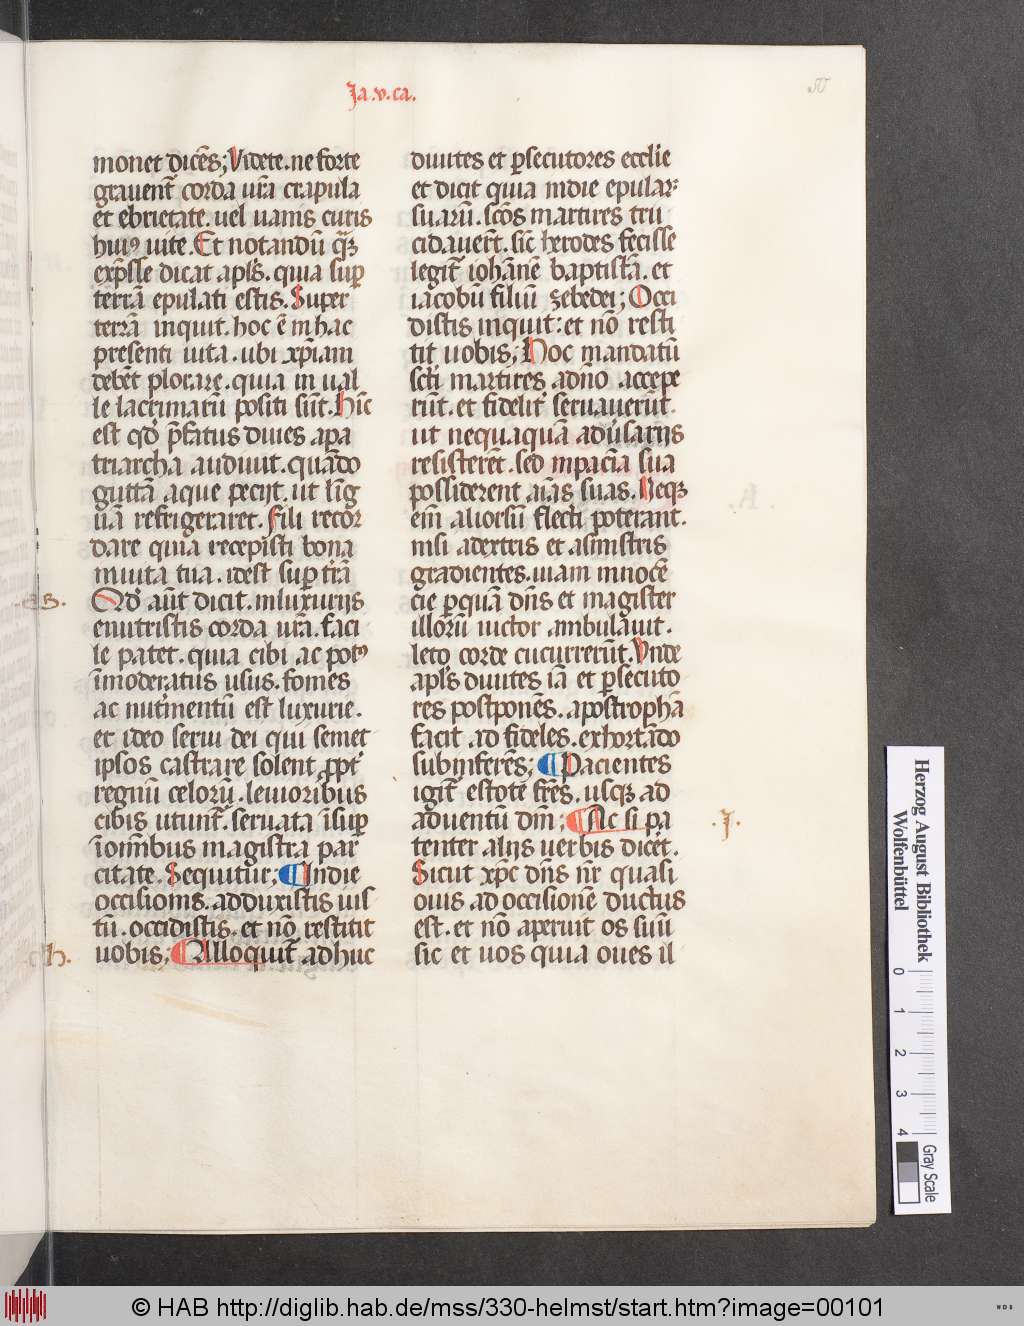 Ja.v.ca.
50
monet dicēs; Videte.ne forte
grauent̄ corda ur̄a crapula
et ebrietate.uel uanis curis
huiꝰ uite.Et notandū qꝫ
exp̄sse dicat apl̄s.quia suꝑ
terrā epulati estis.Super
terrā inquit.hoc ē in hac
presenti uita.ubi xp̄iani
debēt plorare.quia in ual
le lacrimarū positi sūt.Hīc
est qd̓ p̄fatus diues apa
triarcha audiuit.quādo
guttā aque pecijt.ut līg
uā refrigeraret.Fili recor
dare quia recepisti bona
in uita tua.idest suꝑ t̄rā
B.
Qd̓ aūt dicit.inluxurijs
enutristis corda ur̄a.faci
le patet.quia cibi ac potꝰ
īmoderatus usus.fomes
ac nut̓mentū est luxurie.
et ideo serui dei qui semet
ipsos castrare solent ꝓpt̓
regnū celorū.leuioribus
cibis utunt̄.seruata īsuꝑ
ī om̄ibus magistra par
citate.Sequitur; ¶ Indie
occisionis.adduxistis uis
tū.occidistis.et nō restitit
h.
uobis; ¶ Alloquit̄ adhuc
diuites et ꝑsecutores eccl̄ie
et dicit quia in die epular
suarū.sc̄os martires tru
cidauer̄t.sic̄ herodes fecisse
legit̄ iohānē baptistā.et
iacobū filiū zebedei; Occi
distis inquit:et nō resti
tit uobis; Hoc mandatū
sc̄i martires adn̄o accepe
rūt.et fidelit̓ seruauerūt.
ut nequaquā aduersarijs
resisterēt.sed inpaciētia sua
possiderent aīas suas.Neqꝫ
eīm aliorsū flecti poterant.
nisi adextris et asinistris
gradientes.uiam innocē
cie ꝑquā dn̄s et magister
illorū uictor ambulauit.
leto corde cucurrerūt.Vnde
apl̄s diuites iā et ꝑsecuto
res postponēs.apostrophā
facit ad fideles.exhortādo
subinferēs; ¶ Pacientes
igit̄ estote fr̄es.usqꝫ ad
aduentū dn̄i; ¶ Ac si pa
.J.
tenter alijs uerbis dicēt.
Sicut xp̄c dn̄s nr̄ quasi
ouis ad occisionē ductus
est.et nō aperuit os suū
sic et uos quia oues il
Herzog August Bibliothek
Wolfenbüttel
0 1 2 3 4
Gray Scale
© HAB http://diglib.hab.de/mss/330-helmst/start.htm?image=00101